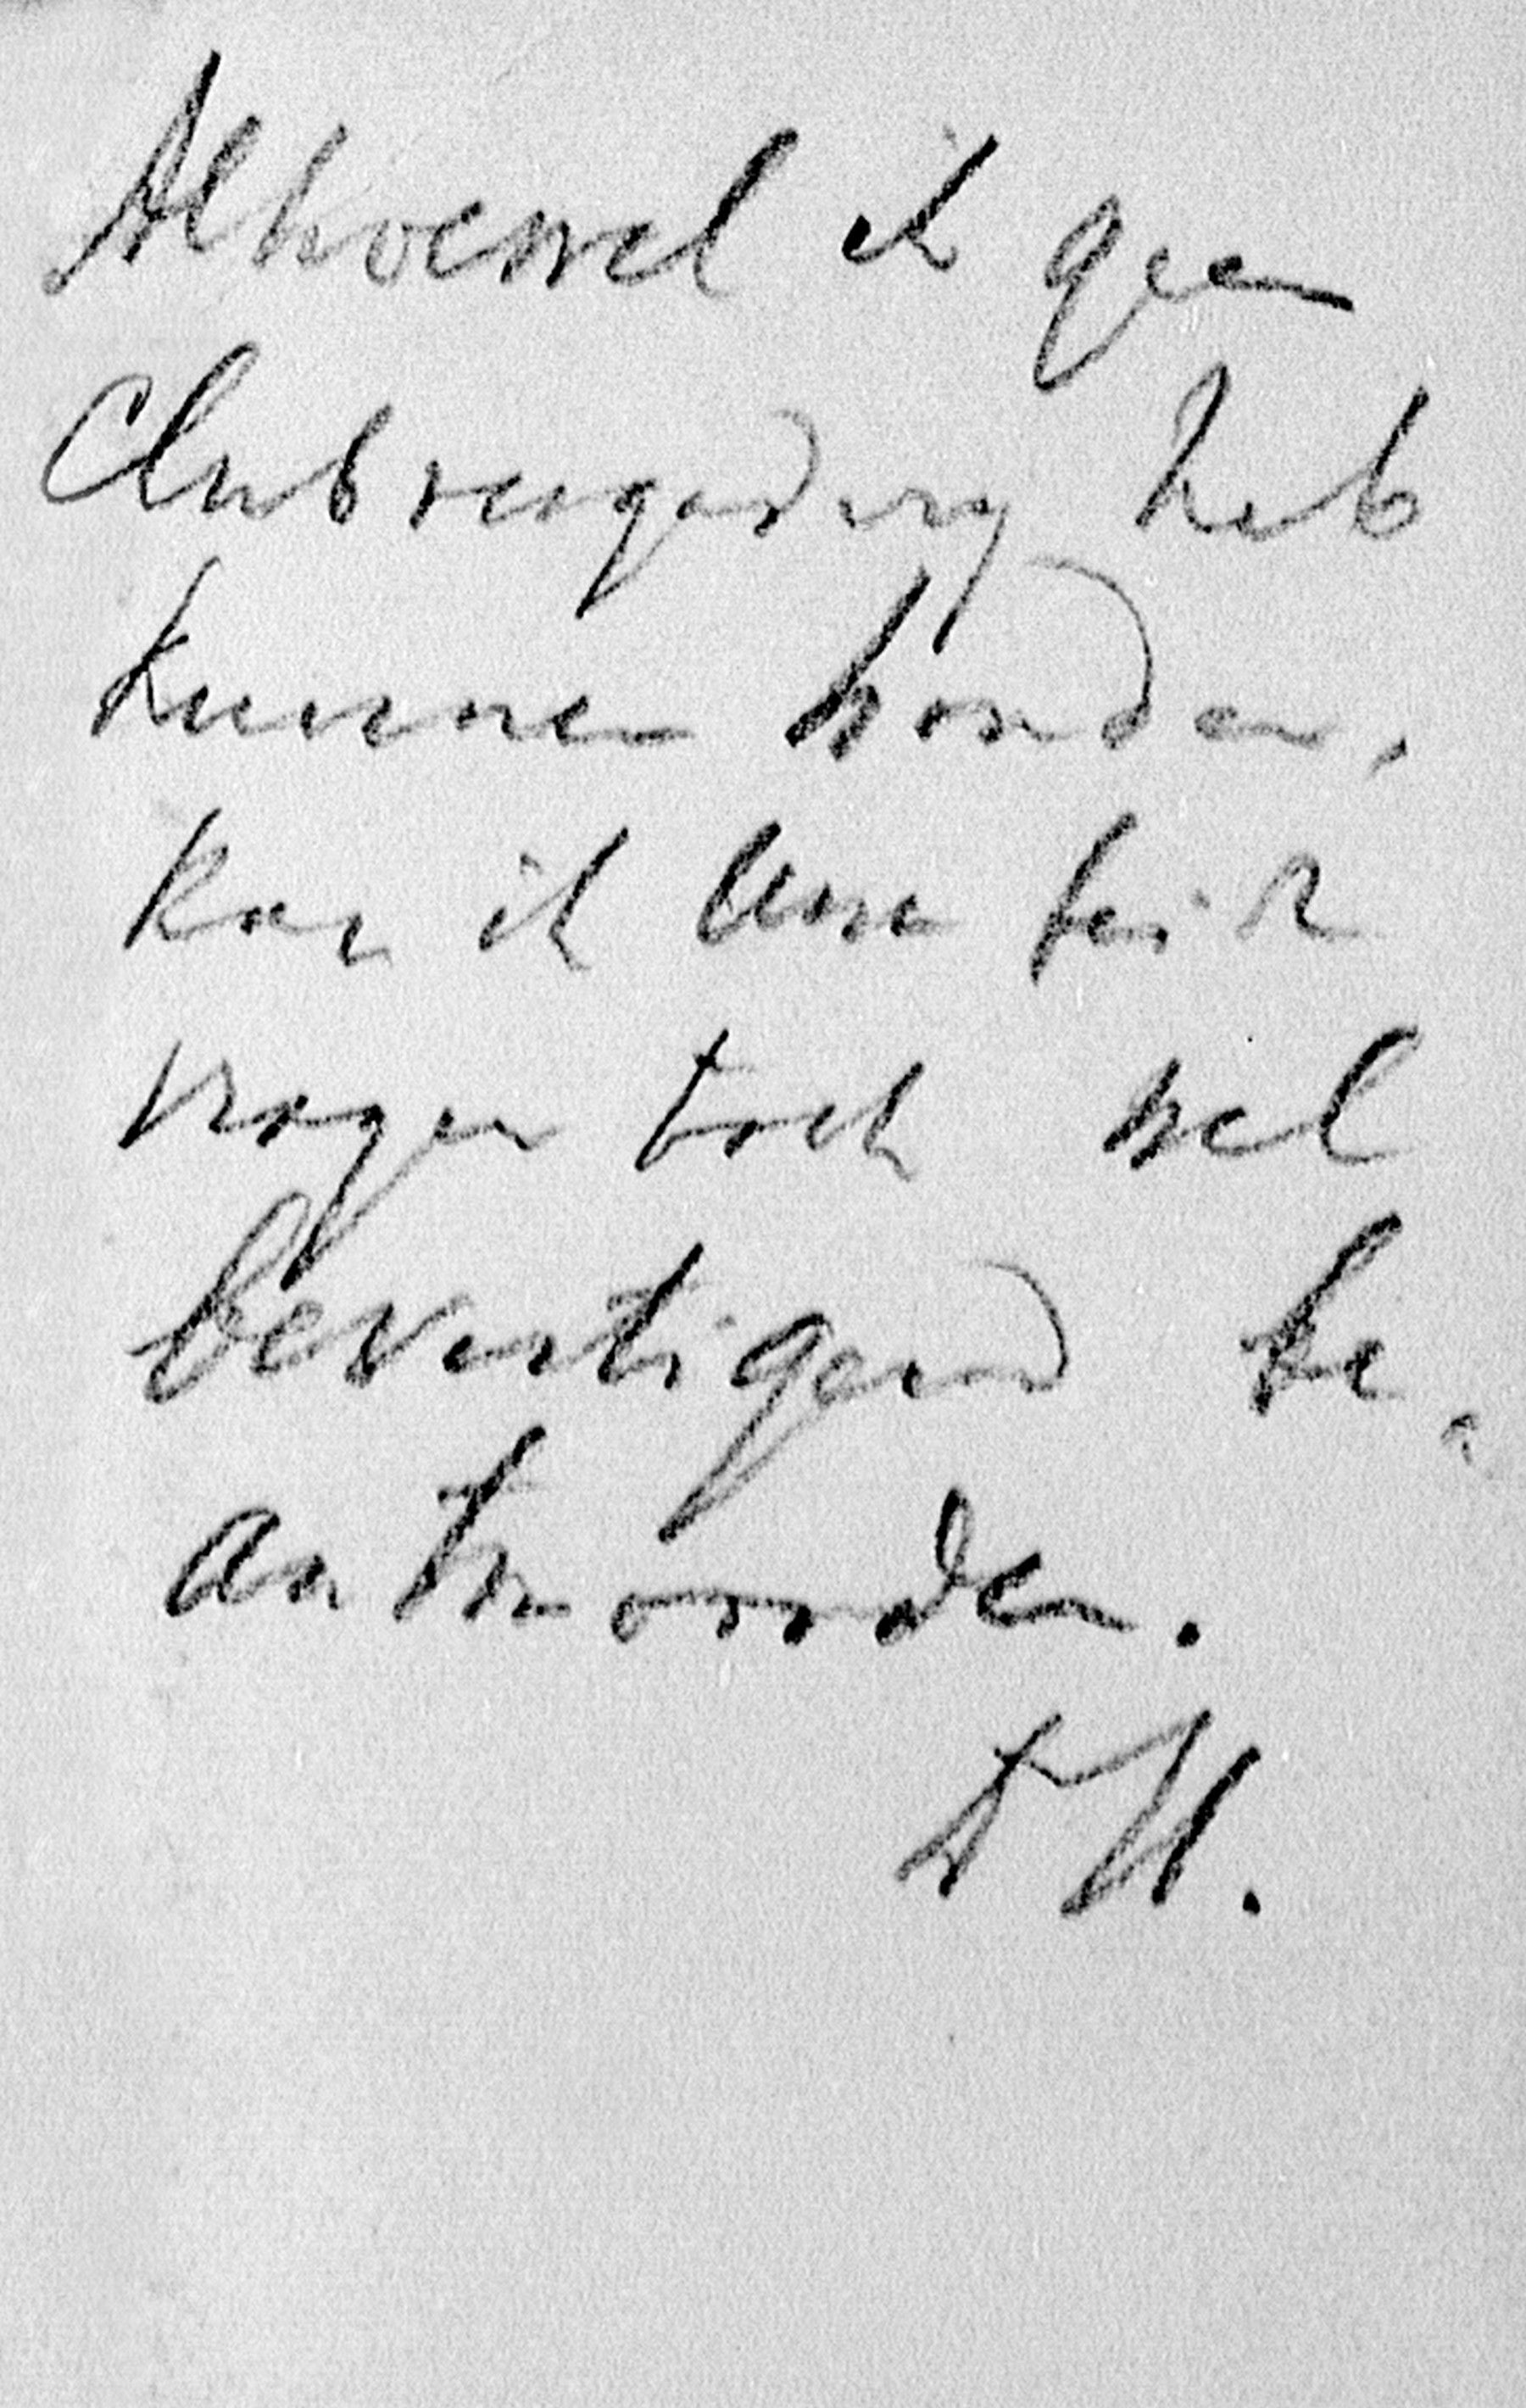 Alhoewel ik geen
Clubvergadering heb
kunnen houden,
kan ik Uwe
vragen toch wel
bevestigend be-
antwoorden.
DrH.